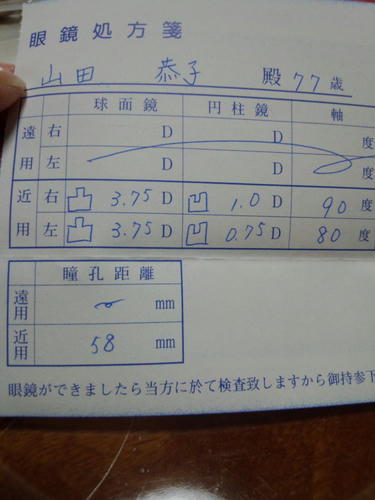 眼鏡処方箋
山田 恭子 殿 77歳
球面鏡 円柱鏡 軸
遠用 右 D D 度
左 D D 度
近用 右 凸 3.75 D 凹 1.0 D 90 度
左 凸 3.75 D 凹 0.75 D 80 度
瞳孔距離
遠用 mm
近用 58 mm
眼鏡ができましたら当方に於て検査致しますから御持参下